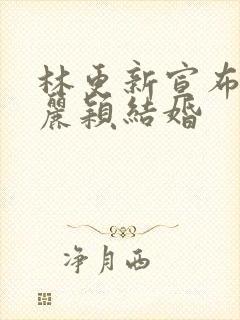 林更新宣布
麗穎結婚
净月西